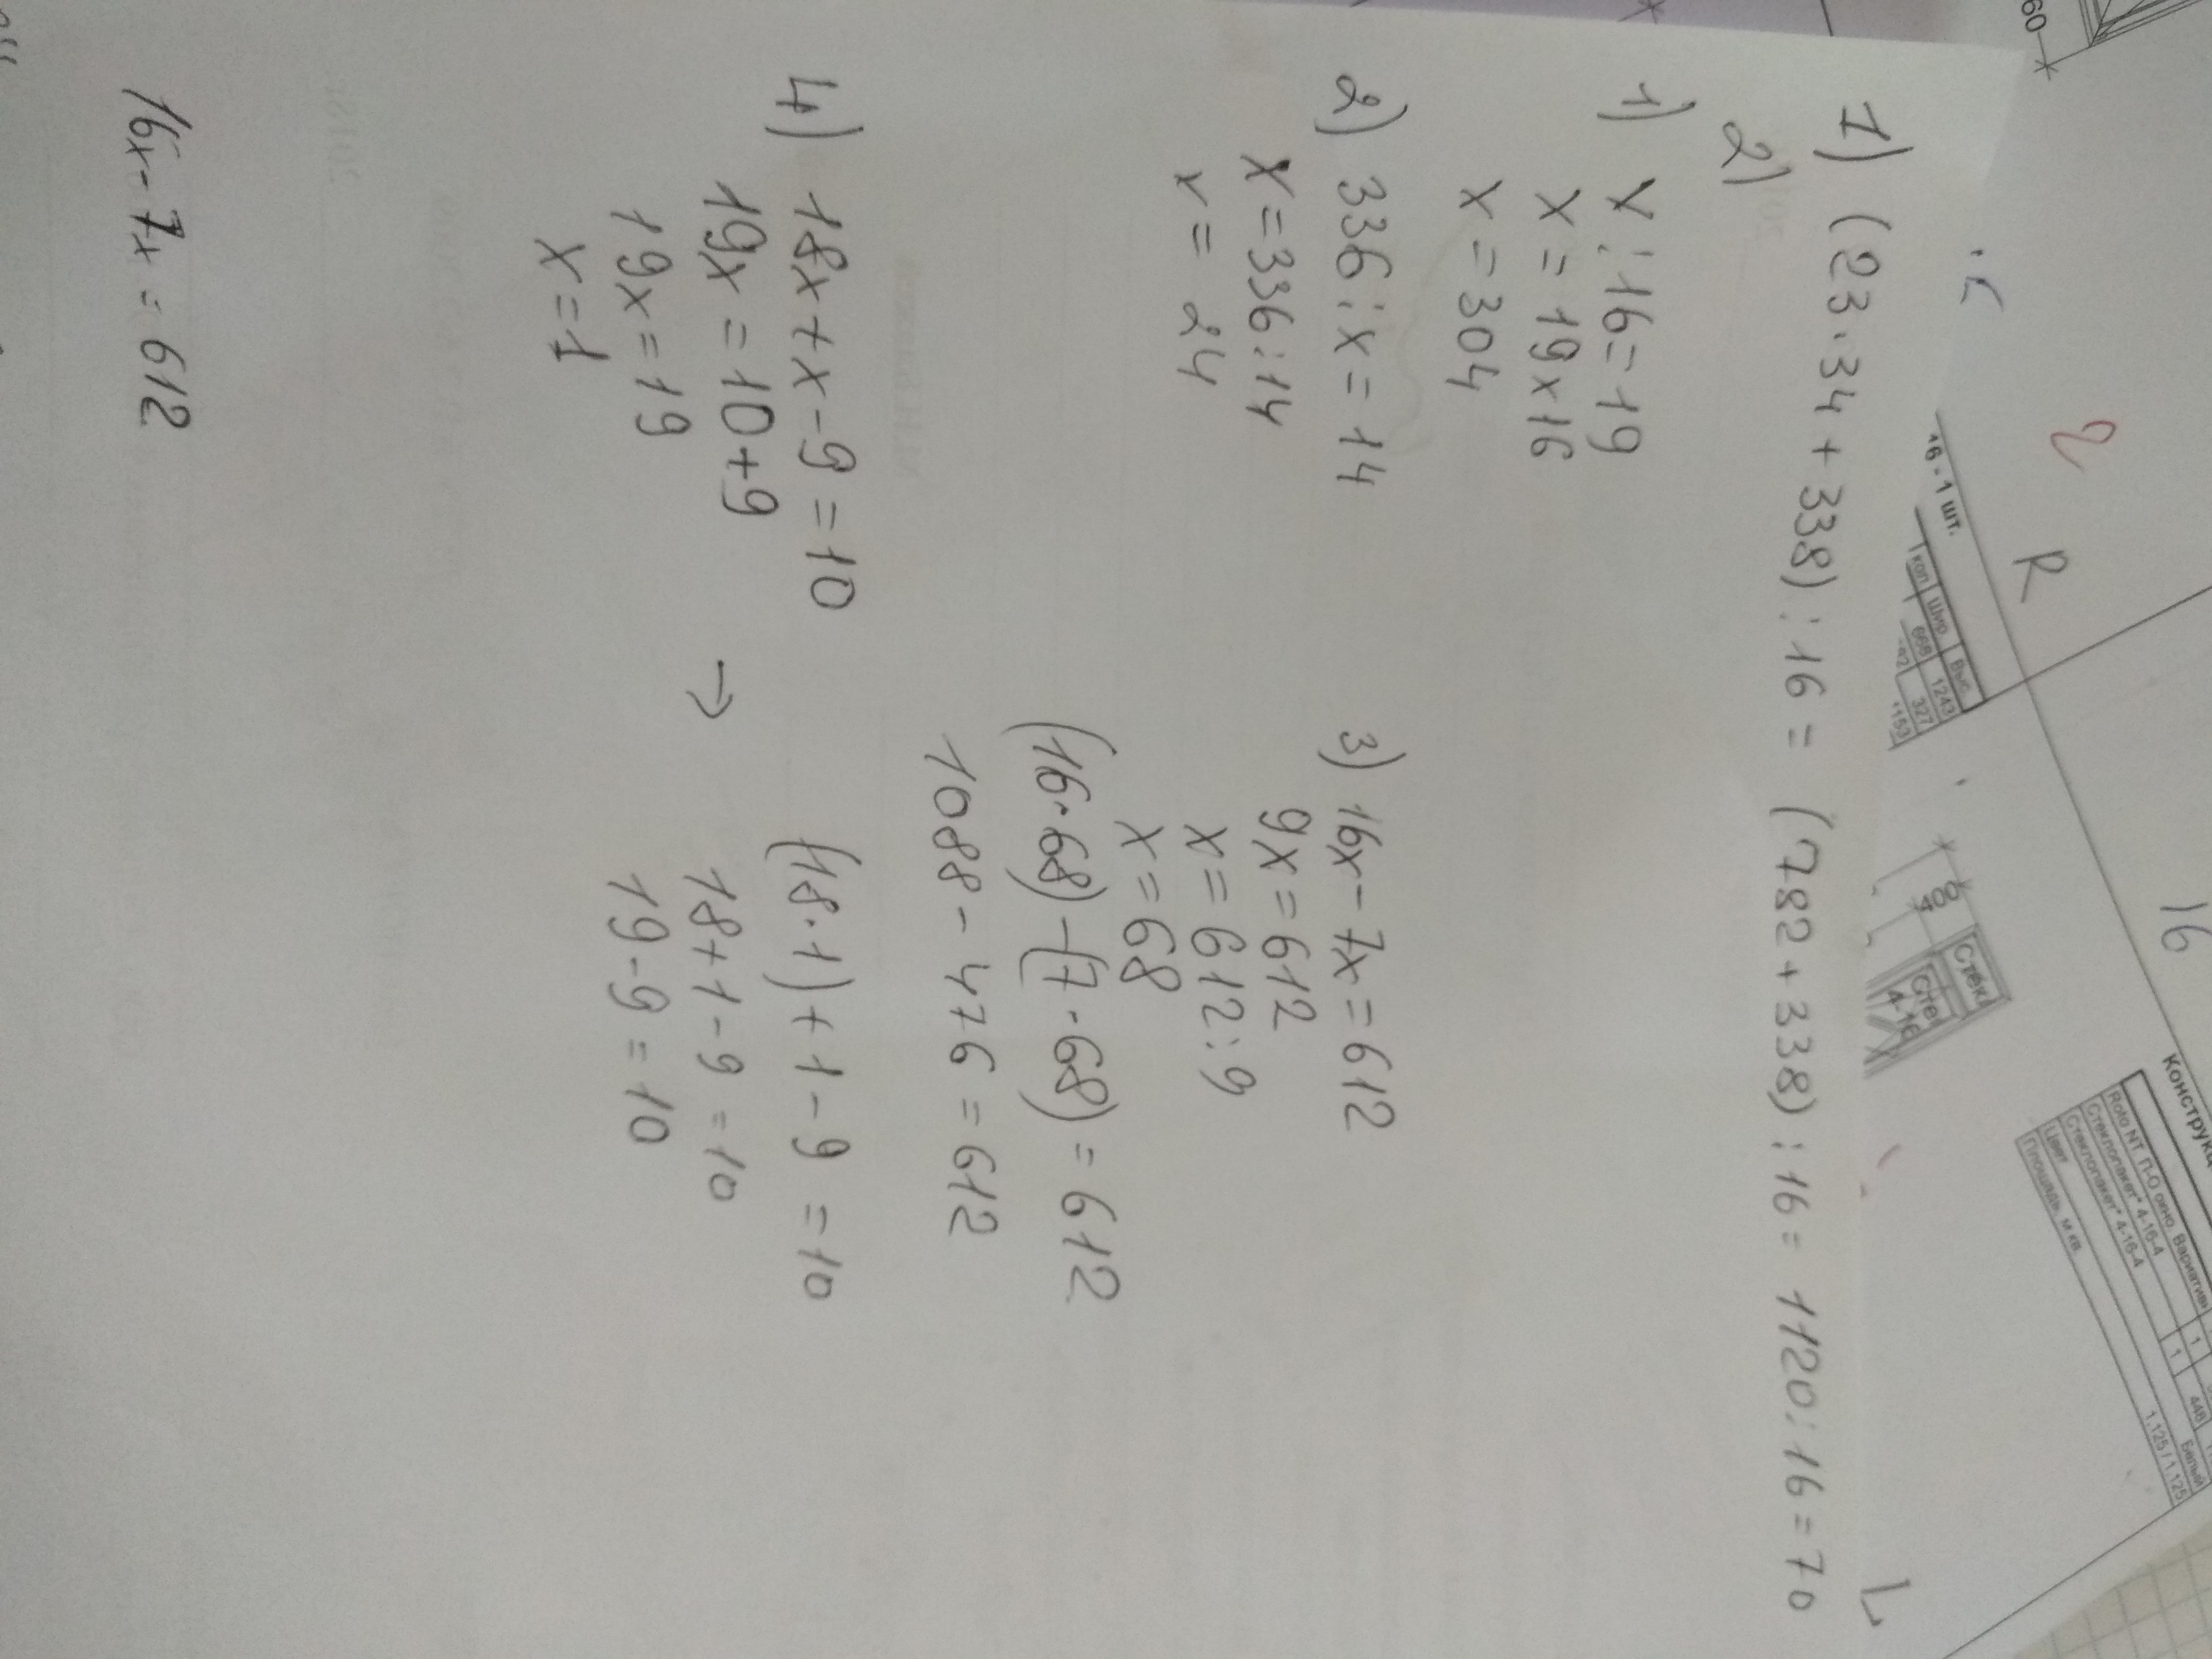 60
R
16
L
16 - 1 шт.
кол Шир Выс.
668 1243
327
1153
400
Стек
Сте
4-16
Roto NT П-О окно.
Стеклопакет* 4-16-4
Стеклопакет* 4-16-4
Цвет
Площадь, м кв.
1
1
446
Белый
1,125 / 1,125
1) (23·34+338):16= (782+338):16= 1120:16=70
2)
1) x:16=19
x=19x16
x=304
2) 336:x=14
x=336:14
x= 24
3) 16x-7x=612
9x=612
x=612:9
x=68
(16·68)-(7·68)=612
1088-476=612
4) 18x+x-9=10
19x=10+9
19x=19
x=1
→
(18·1)+1-9=10
18+1-9=10
19-9=10
16x-7x=612